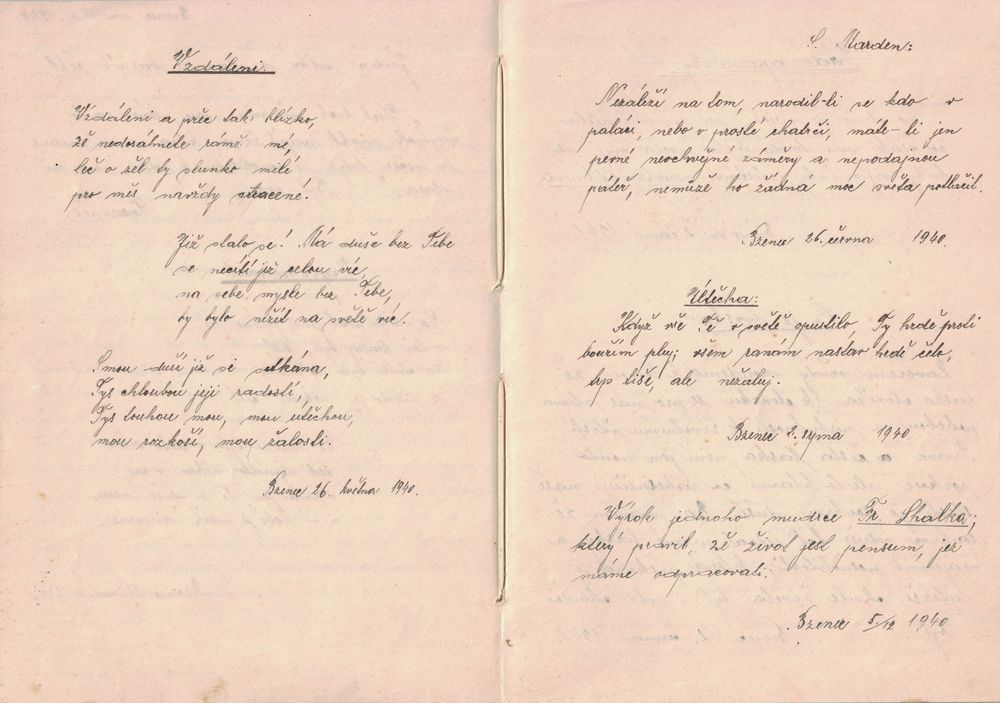 Vzdáleni.
Vzdáleni a přec tak blízko,
že nedosáhnete rámě mé,
leč o žel ty slunko milé
pro měs navždy ztracené!
Již stalo se! Má duše bez Tebe
se necítí již celou víc,
na sebe mysle bez Tebe,
by bylo nežít na světě víc.
S mou duší již se setkána,
Tys chloubou její radostí,
Tys touhou mou, mou útěchou,
mou rozkoší, mou žalostí.
Bzenec 26. května 1940.
S. Marden:
Nezáleží na tom, narodil-li se kdo v
paláci, nebo v prosté chatrči, máte-li jen
pevné neochvějné záměry a nepodajnou
páteř, nemůže ho žádná moc světa potlačit.
Bzenec 26. června 1940.
Útěcha:
Když vše Tě v světě opustilo, Ty hrdě proti
bouřím pluj; všem ranám nastav hrdě čelo,
trp tiše, ale nežaluj.
Bzenec 2. srpna 1940
Výrok jednoho mudrce Fr. Skalka,
který pravil, že život jest pensum, jež
máme odpracovati.
Bzenec 5/12 1940